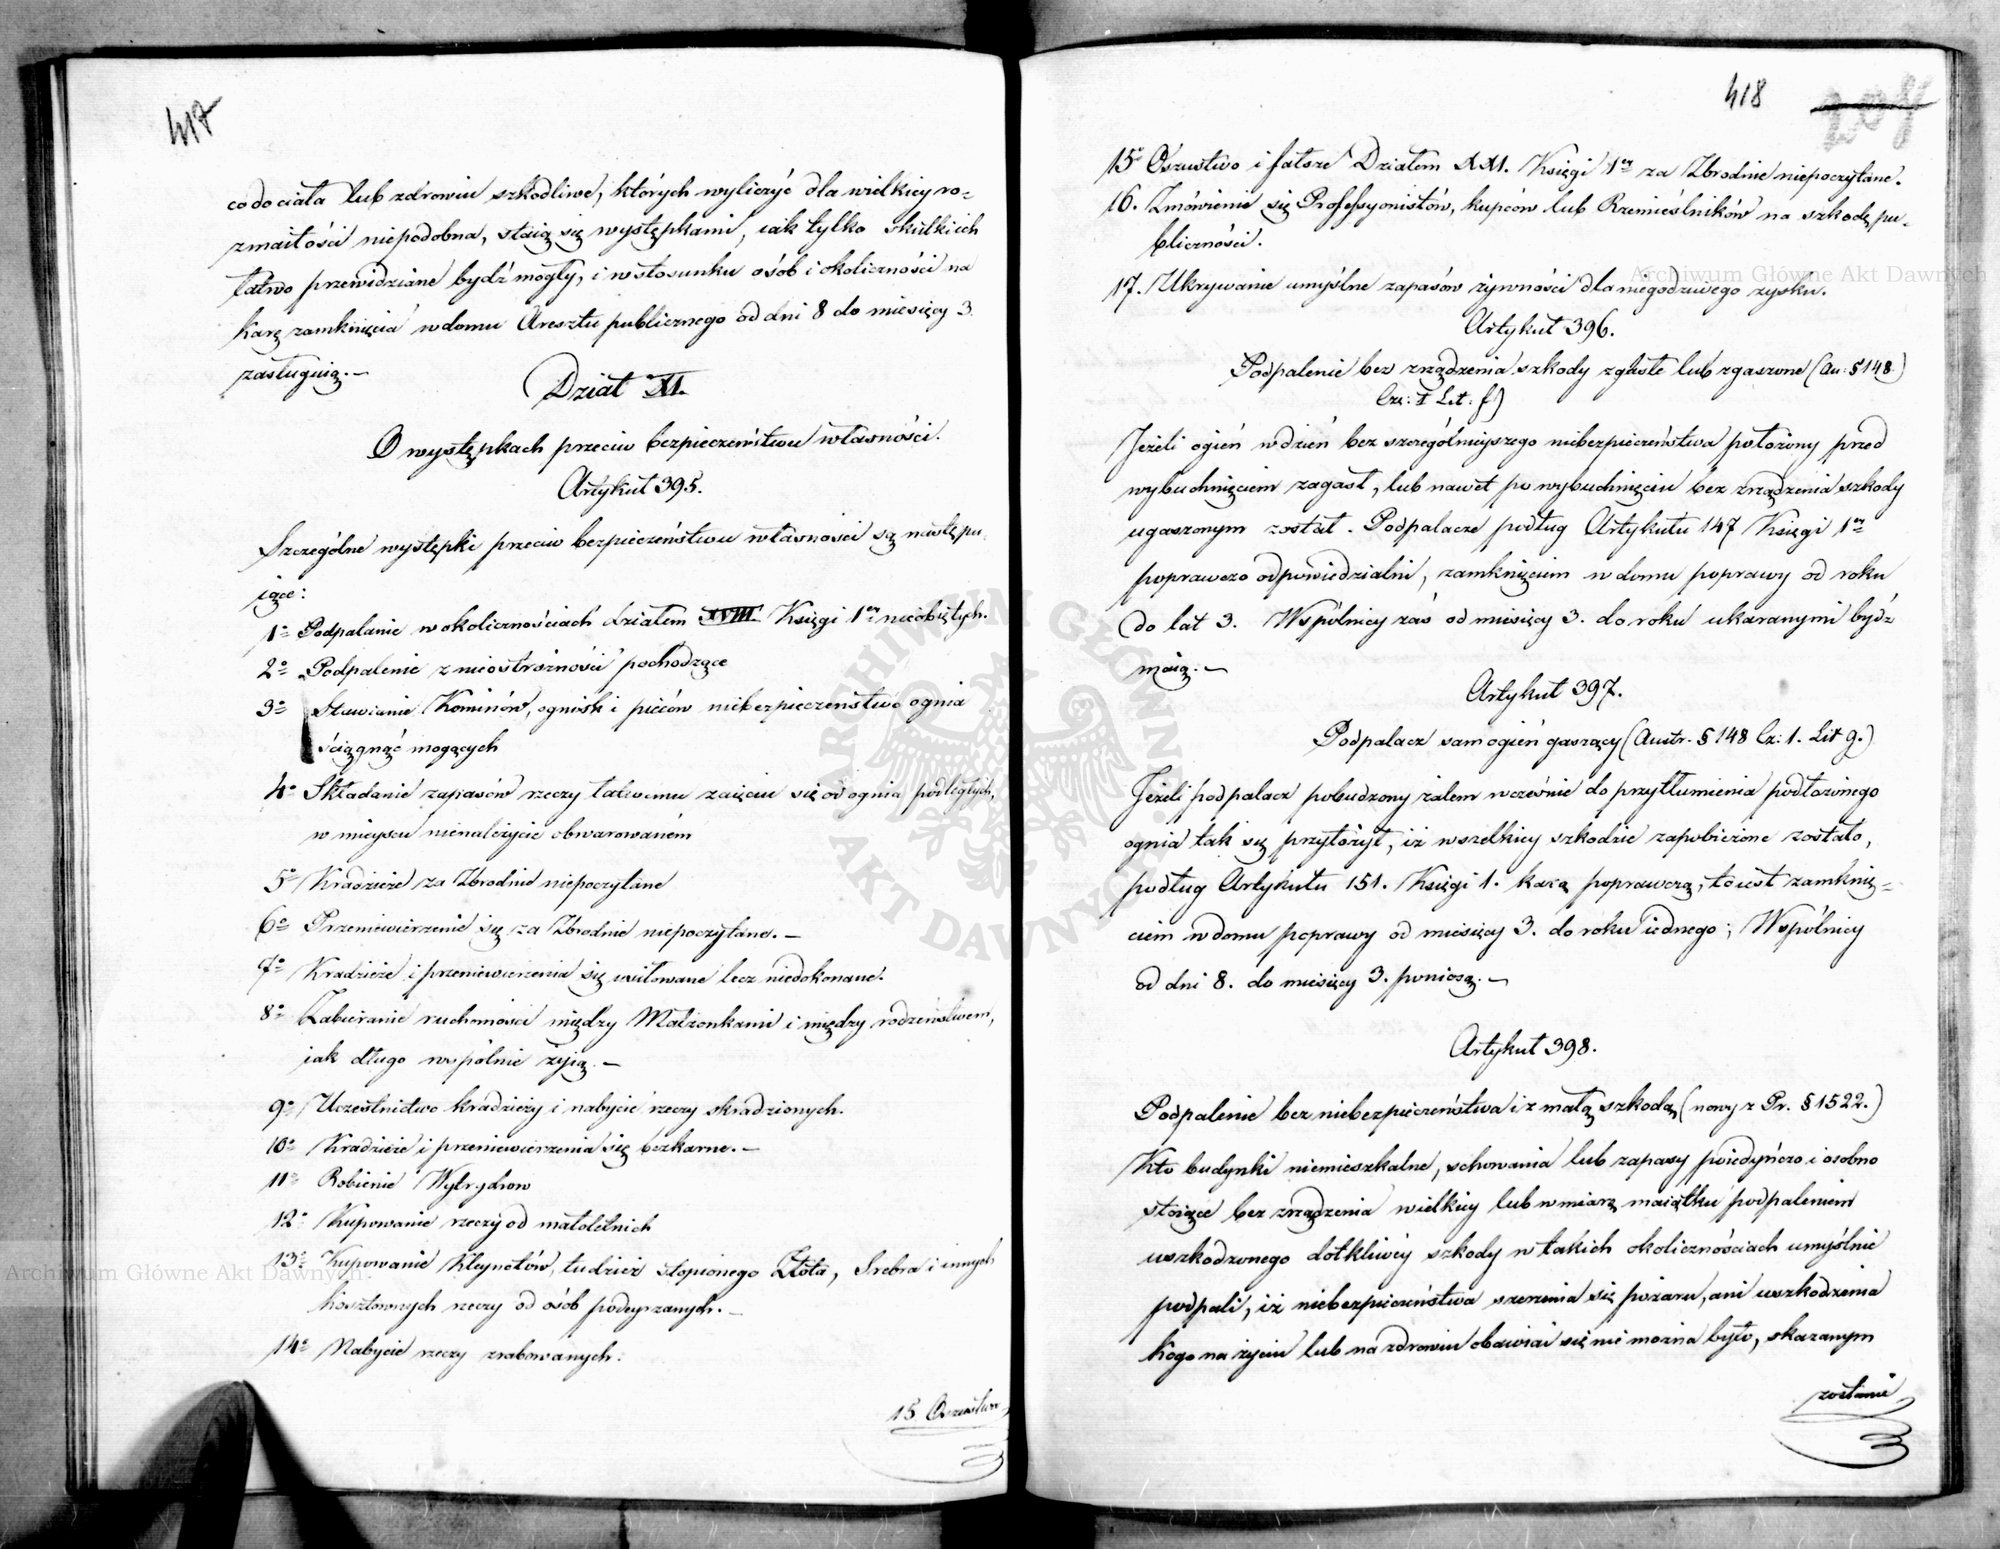 417
co do ciała lub zdrowiu szkodliwe, których wyliczyć dla wielkiey ro-
zmaitości niepodobna, staią się występkami, iak tylko skutki ich
łatwo przewidziane bydź mogły, i w stosunku osób i okoliczności na
karę zamknięcia w domu Aresztu publicznego od dni 8 do miesięcy 3.
zasługuią.—
Dział XI.
O występkach przeciw bezpieczeństwu własności.
Artykuł 395.
Szczególne występki przeciw bezpieczeństwu własności są następu-
iące:
1o Podpalanie w okolicznościach działem XVIII Księgi 1ey nieobiętych.
2o Podpalenie z nieostrożności pochodzące
3o Stawianie Kominów, ognisk i pieców niebezpieczeństwo ognia
ściągnąć mogących
4o Składanie zapasów rzeczy łatwemu zaięciu się od ognia podległych,
w mieyscu nienależycie obwarowaném
5o Kradzieże za Zbrodnie niepoczytane
6o Przeniewierzenie się za Zbrodnie niepoczytane.—
7o Kradzieże i przeniewierzenia się usiłowane lecz niedokonane.
8o Zabieranie ruchomości między Małżonkami i między rodzeństwem,
iak długo wspólnie żyią.—
9o Uczestnictwo kradzieży i nabycie rzeczy skradzionych.
10o Kradzieże i przeniewierzenia się bezkarne.—
11o Robienie Wytrychow
12o Kupowanie rzeczy od małoletnich
13o Kupowanie Kleynotów, tudzież stopionego Złota, Srebra i innych
kosztownych rzeczy od osób podeyrzanych.—
14o Nabycie rzeczy zrabowanych.
15. Oszustwo
418
15o Oszustwo i fałsze Działem XXI. Księgi 1ey za Zbrodnie niepoczytane.
16. Zmówienie się Professyonistów, kupców lub Rzemieślników na szkodę pu-
bliczności.
17. Ukrywanie umyślne zapasów żywności dla niegodziwego zysku.
Artykuł 396.
Podpalenie bez zrządzenia szkody zgasłe lub zgaszone (Au: § 148.
Cz: I Lit: f)
Jeżeli ogień w dzień bez szczególnieyszego niebezpieczeństwa położony przed
wybuchnięciem zagasł, lub nawet po wybuchnięciu bez zrządzenia szkody
ugaszonym został. Podpalacze podług Artykułu 147 Księgi 1ey
poprawczo odpowiedzialni, zamknięciem w domu poprawy od roku
do lat 3. Wspólnicy zaś od miesięcy 3. do roku ukaranymi bydź
maią.—
Artykuł 397.
Podpalacz sam ogień gaszący (Austr. § 148 Cz: 1. Lit g.)
Jeżeli podpalacz pobudzony żalem wcześnie do przytłumienia podłożonego
ognia tak się przyłożył, iż wszelkiey szkodzie zapobieżone zostało,
podług Artykułu 151. Księgi 1. karę poprawczą, to iest zamknię-
ciem w domu poprawy od miesięcy 3. do roku iednego; Wspólnicy
od dni 8. do miesięcy 3. poniosą.—
Artykuł 398.
Podpalenie bez niebezpieczeństwa i z małą szkodą (nowy z Pr. § 1522.)
Kto budynki niemieszkalne, schowania lub zapasy poiedyńczo i osobno
stoiące bez zrządzenia wielkiey lub w miarę maiątku podpaleniem
uszkodzonego dotkliwéy szkody w takich okolicznościach umyślnie
podpali, iż niebezpieczeństwa szerzenia się pożaru, ani uszkodzenia
kogo na życiu lub na zdrowiu obawiać się nie można było, skazanym
zostanie
Archiwum Główne Akt Dawnych
Archiwum Główne Akt Dawnych
ARCHIWUM GŁÓWNE AKT DAWNYCH